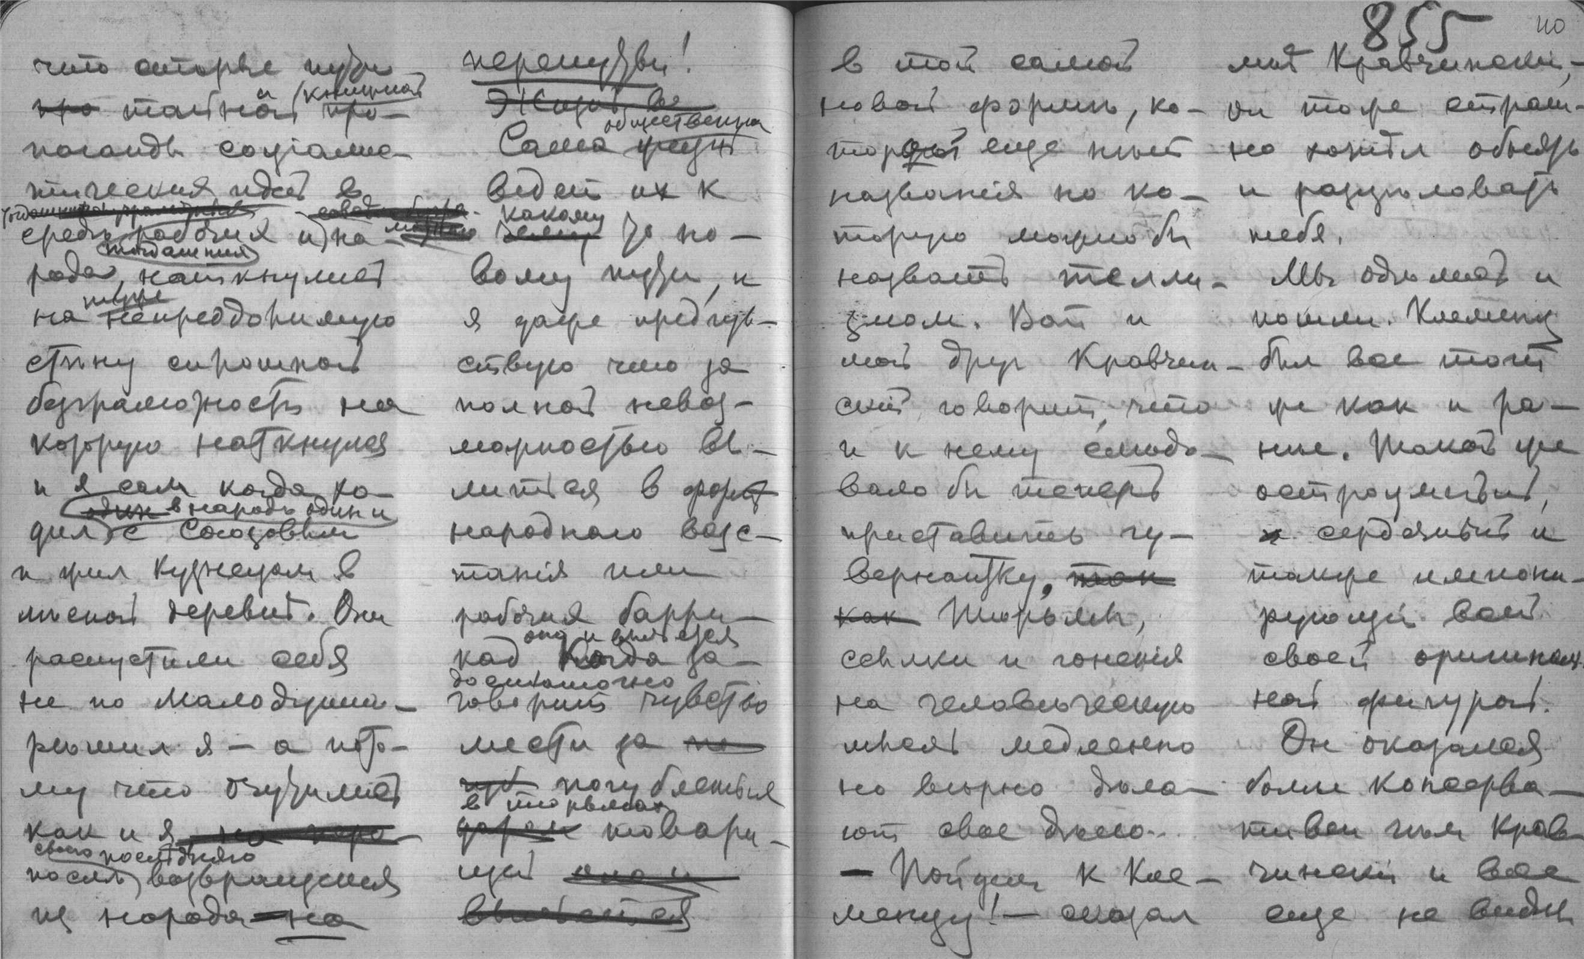 что старые пути
про тайной и книжной про-
паганды соціалис-
тических идей в
среде рабочих и на-
тогдашния
рода, наткнулись
на ту же
непреодолимую
стѣну сплошной
безграмотности на
которую наткнулся
и я сам когда хо-
один в народъ один и
дил с Союзовым
и жил кузнецом в
лѣсной деревнѣ. Они
распустили себя
не по малодушію
рѣшил я — а пото-
му что очутились
как и я на пере
своего послѣдняго
послѣ возвращения
из народа на
перепутьи!
Жизнь все
общественная
Сама жизнь
ведет их к
какому
чему то но-
вому пути, и
я даже предчув-
ствую что за
полной невоз-
можностью вы-
литься в форму
народнаго возс-
танія или
рабочих барри-
кад она и выльется
когда за-
достаточно
говорит чувство
мести за
погубленных
в тюрьмах
товари-
щей она и
выльется
855
110
в той самой
новой формѣ, ко-
торой еще нѣт
названія но ко-
торую можно бы
назвать телли-
змом. Вот и
мой друг Кравчин-
ский говорит, что
и к нему слѣдо-
вало бы теперь
приставить гу-
вернантку, так
как Тюрьмы,
ссылки и гоненія
на человѣческую
мысль медленно
но вѣрно дѣла-
ют свое дѣло.
— Пойдем к Кле-
менцу! — сказал
мнѣ Кравчинский,
он тоже страш-
но хотѣл обнять
и расцѣловать
тебя.
Мы одѣлись и
пошли. Клеменц
был все тот
же как и ра-
нее. Такой же
остроумный,
и сердечный и
также импони-
рующий всей
своей оригиналь-
ной фигурой.
Он оказался
болѣе консерва-
тивен чѣм Крав-
чинский и все
еще не видѣл